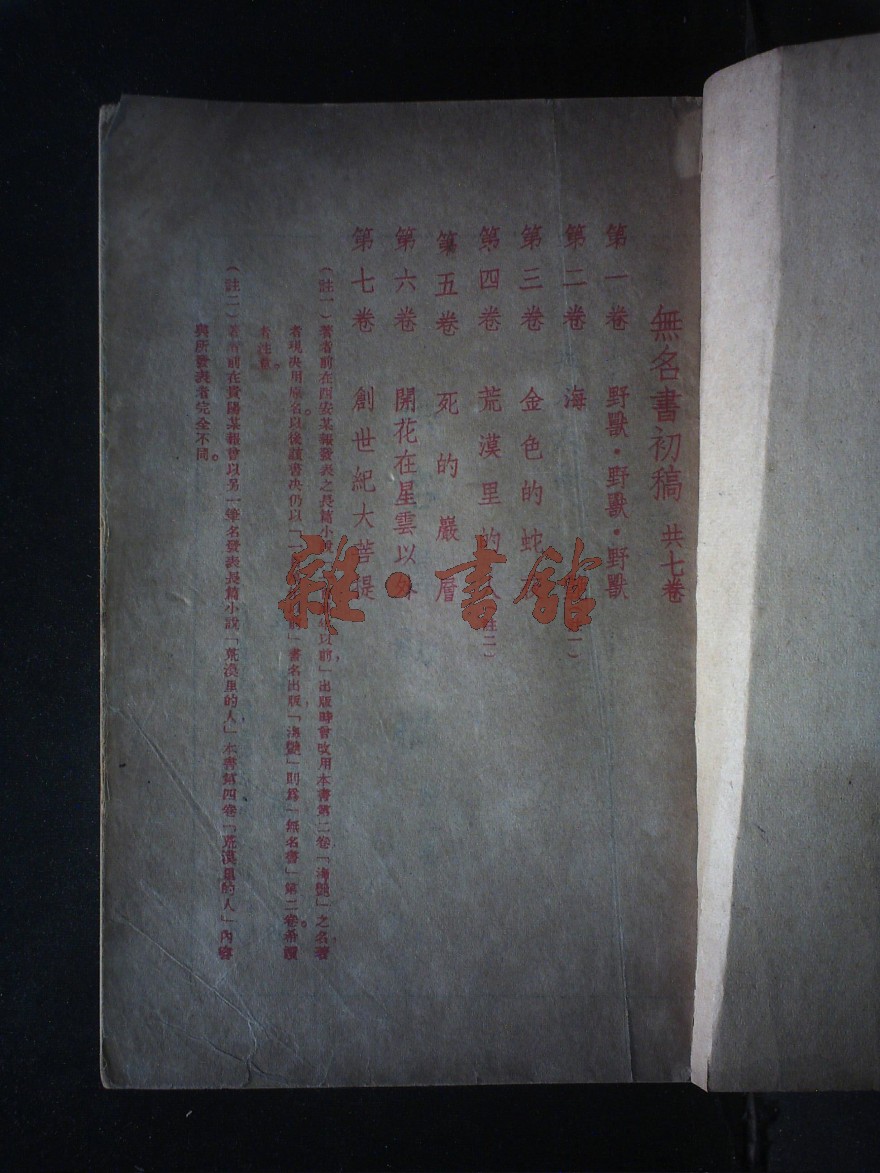 無名書初稿 共七卷
第一卷 野獸·野獸·野獸
第二卷 海 一）
第三卷 金色的蛇
第四卷 荒漠里的 註二）
第五卷 死的巖層
第六卷 開花在星雲以外
第七卷 創世紀大菩提
（註一）著者前在西安某報發表之長篇小說 年以前」出版時曾改用本書第二卷「海艷」之名著
者現決用原名以後讀書決仍以「一 前」書名出版，「海艷」則爲「無名書」第二卷。希讀
者注意。
（註二）著者前在貴陽某報曾以另一筆名發表長篇小說「荒漠里的人」本書第四卷「荒漠里的人」內容
與所發表者完全不同。
雜·書館